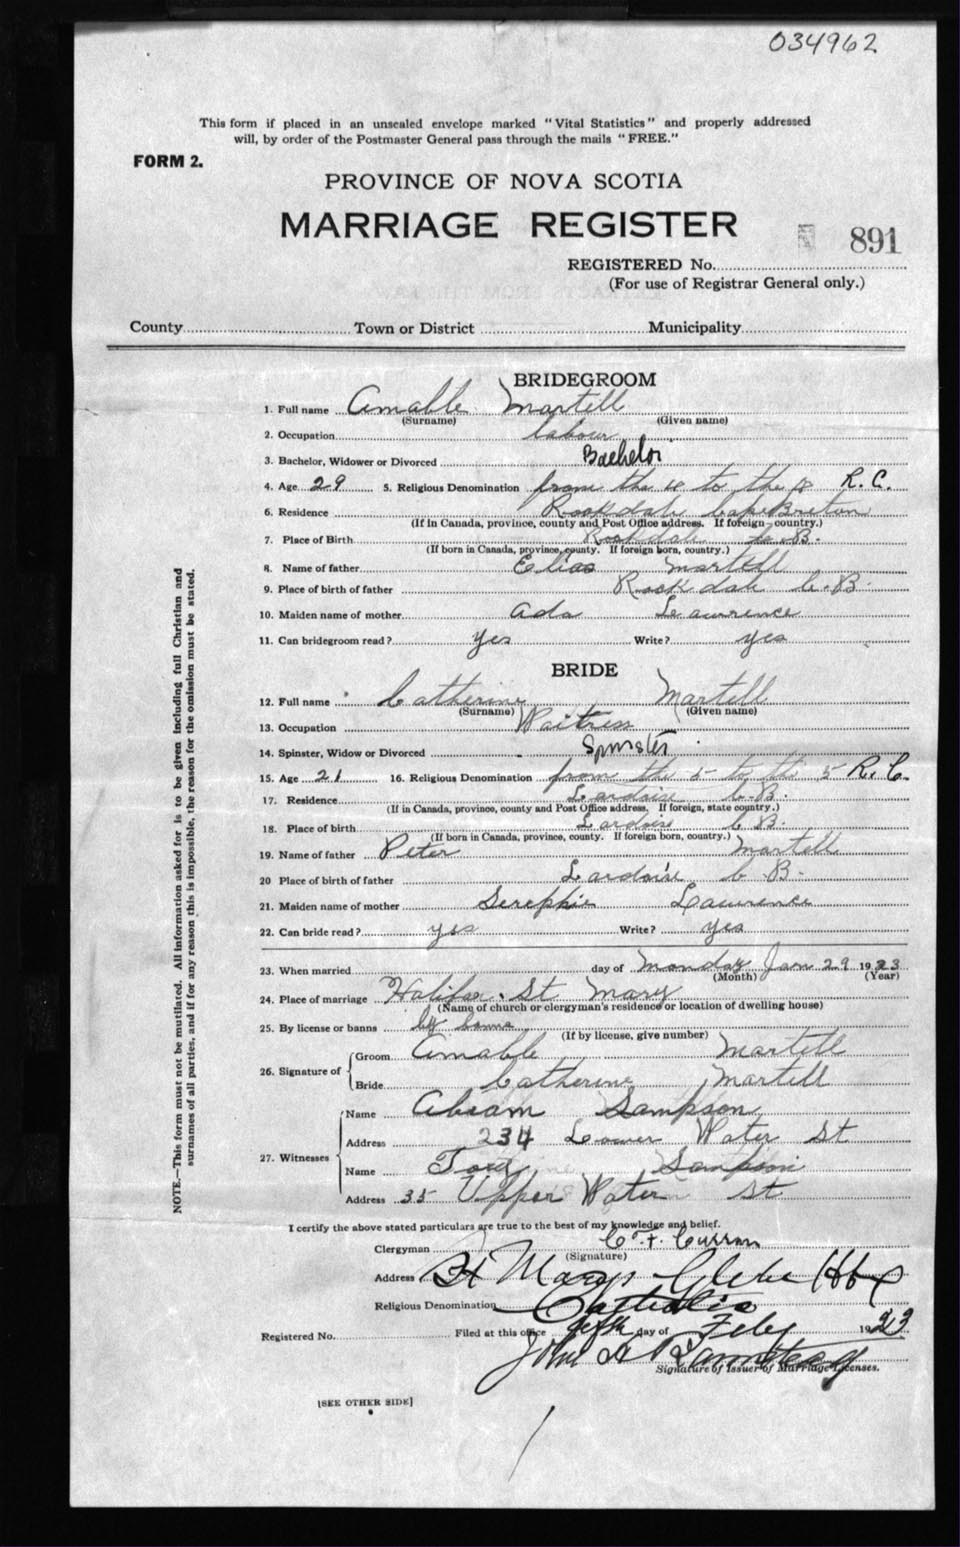 034962
This form if placed in an unsealed envelope marked "Vital Statistics" and properly addressed
will, by order of the Postmaster General pass through the mails "FREE."
FORM 2.
PROVINCE OF NOVA SCOTIA
MARRIAGE REGISTER
891
REGISTERED No.
(For use of Registrar General only.)
County Town or District Municipality
BRIDEGROOM
1. Full name Amable Martell
(Surname) (Given name)
2. Occupation labour
3. Bachelor, Widower or Divorced Bachelor
4. Age 29 5. Religious Denomination from the to the R. C.
6. Residence Rockdale Cape Breton
(If in Canada, province, county and Post Office address. If foreign—country.)
7. Place of Birth Rockdale C. B.
(If born in Canada, province, county. If foreign born, country.)
8. Name of father Elias Martell
9. Place of birth of father Rockdale C. B.
10. Maiden name of mother Ada Lawrence
11. Can bridegroom read? yes Write? yes
BRIDE
12. Full name Catherine Martell
(Surname) (Given name)
13. Occupation Waitress
14. Spinster, Widow or Divorced Spinster
15. Age 21 16. Religious Denomination from the 5 to the 5 R. C.
17. Residence Lardoise C. B.
(If in Canada, province, county and Post Office address. If foreign, state country.)
18. Place of birth Lardoise C B.
(If born in Canada, province, county. If foreign born, country.)
19. Name of father Peter Martell
20 Place of birth of father Lardoise C B.
21. Maiden name of mother Serephie Lawrence
22. Can bride read? yes Write? yes
23. When married day of Monday Jan 29 1923
(Month) (Year)
24. Place of marriage Halifax St Mary
(Name of church or clergyman's residence or location of dwelling house)
25. By license or banns by banns
(If by license, give number)
26. Signature of Groom Amable Martell
Bride Catherine Martell
27. Witnesses Name Abram Sampson
Address 234 Lower Water St
Name Sampson
Address 35 Upper Water St
I certify the above stated particulars are true to the best of my knowledge and belief.
Clergyman C. F. Curran
(Signature)
Address St Marys Glebe Hfx
Religious Denomination Catholic
Registered No. Filed at this office fifth day of Feby 1923
John A
Signature of Issuer of Marriage Licenses.
[SEE OTHER SIDE]
NOTE.—This form must not be mutilated. All information asked for is to be given including full Christian and
surnames of all parties, and if for any reason this is impossible, the reason for the omission must be stated.